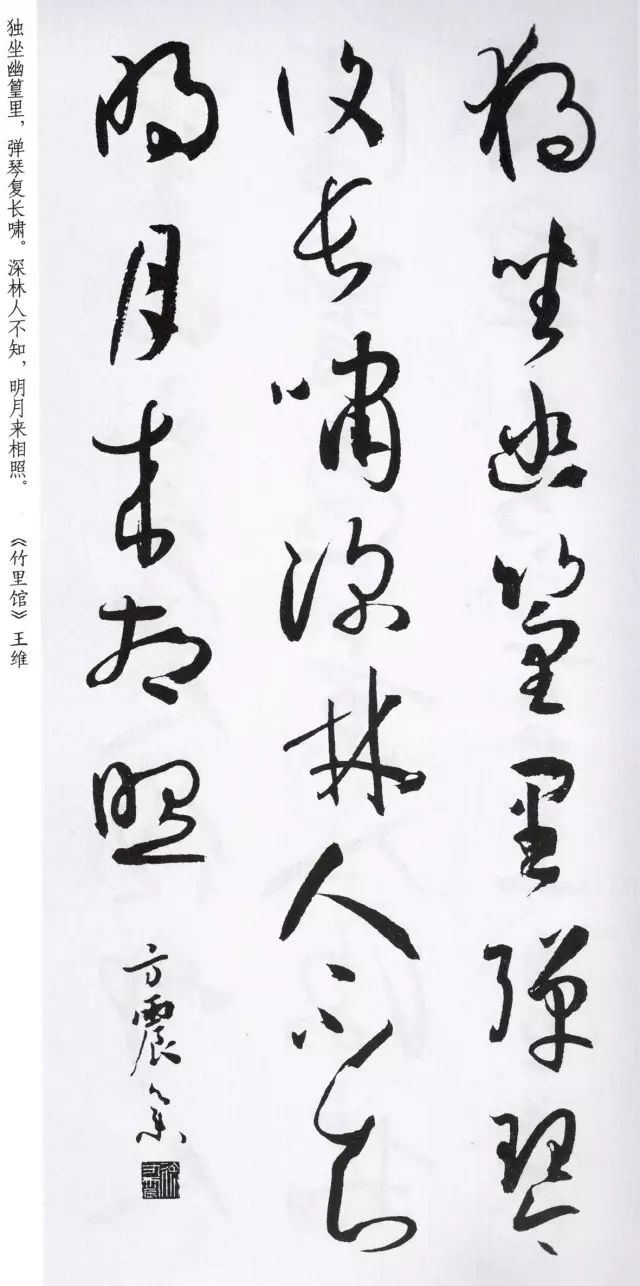 独坐幽篁里弹琴
复长啸深林人不知
明月来相照
方震
独坐幽篁里，弹琴复长啸。深林人不知，明月来相照。 《竹里馆》王维